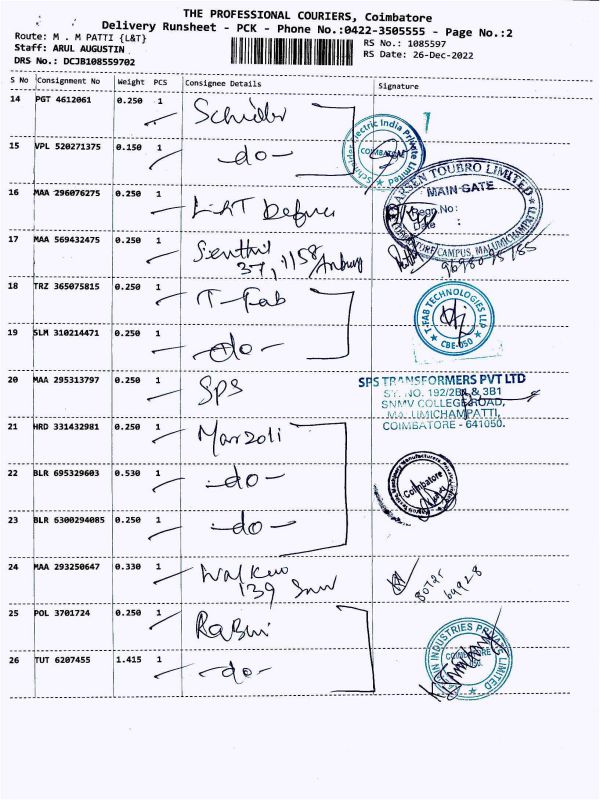 THE PROFESSIONAL COURIERS, Coimbatore
Delivery Runsheet - PCK - Phone No.:0422-3505555 - Page No.:2
Route: M . M PATTI {L&T}
Staff: ARUL AUGUSTIN
DRS No.: DCJB108559702
RS No.: 1085597
RS Date: 26-Dec-2022
S No Consignment No Weight PCS Consignee Details Signature
14 PGT 4612061 0.250 1
15 VPL 520271375 0.150 1 -do-
Electric India Private Limited
COIMBATORE
16 MAA 296076275 0.250 1 L&T
LARSEN TOUBRO LIMITED
MAIN GATE
Regn.No:
Date :
CAMPUS, MALUMICHAMPATTI
17 MAA 569432475 0.250 1 Senthil
18 TRZ 365075815 0.250 1 T-Fab
T-FAB TECHNOLOGIES LLP
CBE-050
19 SLM 310214471 0.250 1 -do-
20 MAA 295313797 0.250 1 SPS
SPS TRANSFORMERS PVT LTD
SY. NO. 192/2B1 & 3B1
SNMV COLLEGE ROAD,
MALUMICHAMPATTI,
COIMBATORE - 641050.
21 HRD 331432981 0.250 1 Marzoli
22 BLR 695329603 0.530 1 -do-
Coimbatore
23 BLR 6300294085 0.250 1 -do-
24 MAA 293250647 0.330 1
139
25 POL 3701724 0.250 1
INDUSTRIES PRIVATE LIMITED
26 TUT 6207455 1.415 1 -do-